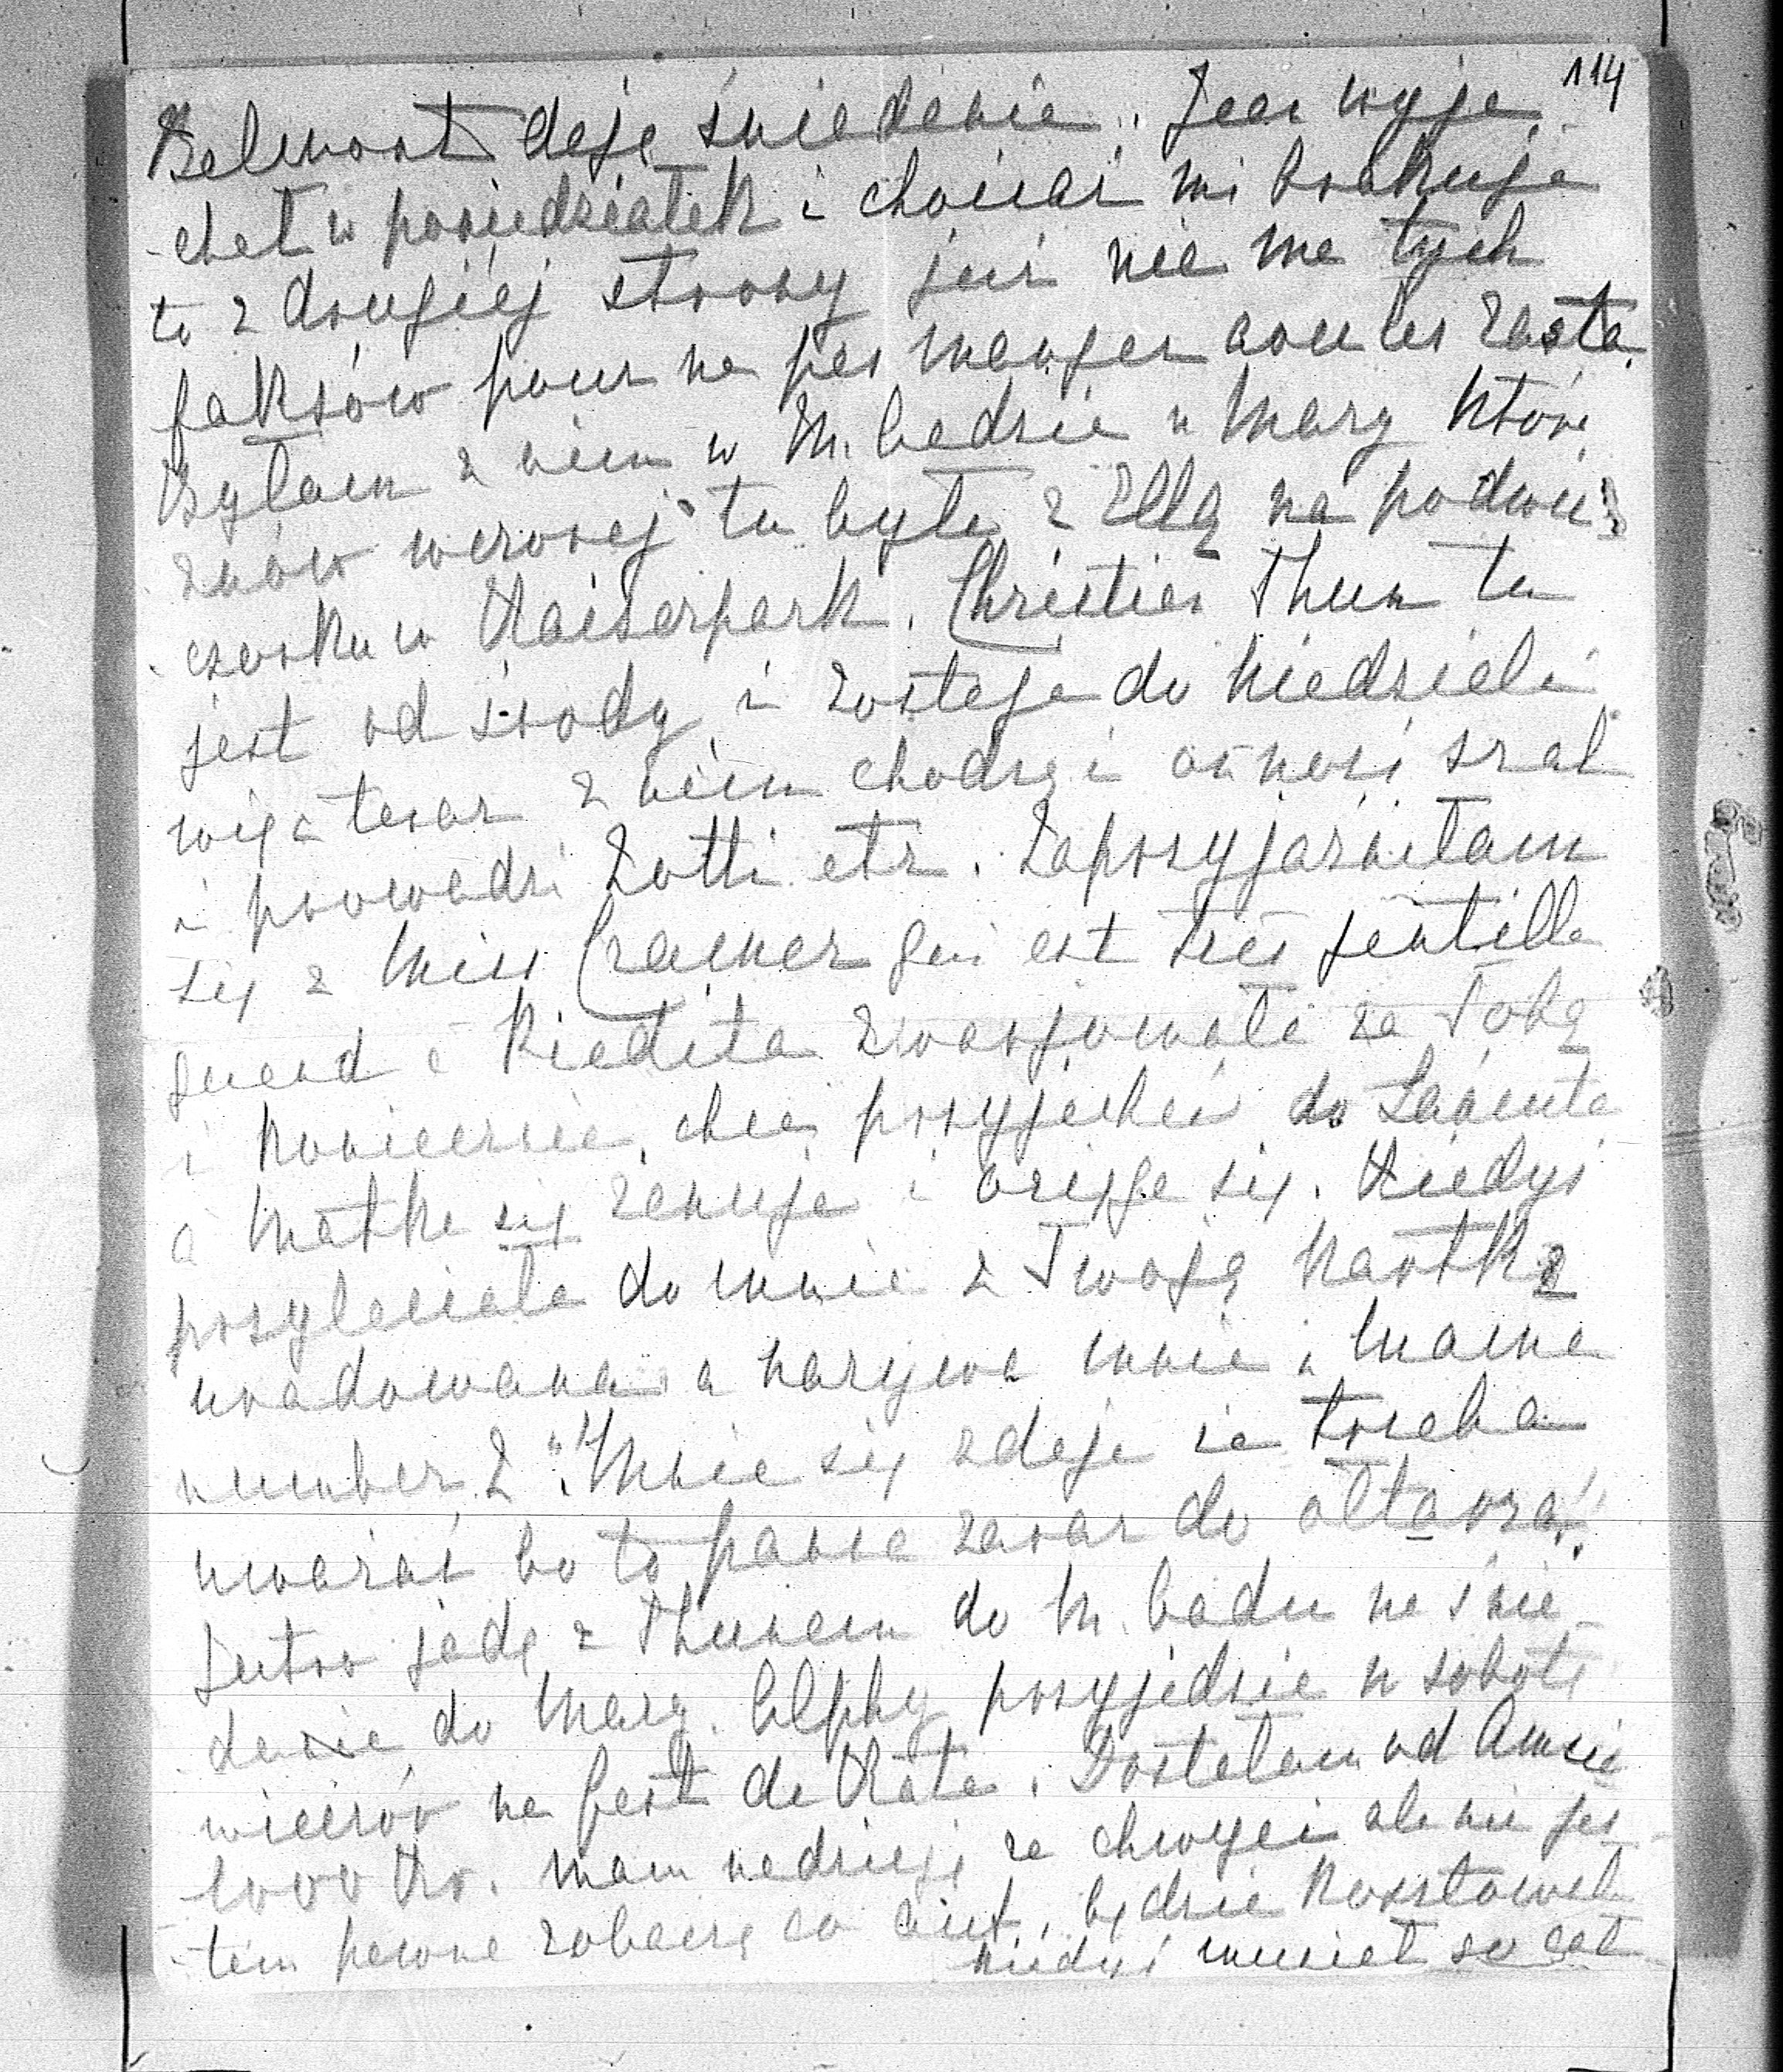 114
Belmont daje śniadanie. Jeer wyje
chał w poniedziałek i chociaż mi brakuje
to z drugiej strony już nie ma tych
faksów pour ne pas manger avec les Rasta.
Byłam z nim w M. badzie u Mary która
znów wczoraj tu była z Ellą na podwie
czorku w Kaiserpark. Christian Thun tu
jest od środy i zostaje do niedzieli
więc teraz z nim chodzę i on nosi szal
i prowadzi Lotti etz. Zaprzyjaźniłam
się z Miss Cramer qui est très gentille
quand i Riedita zwarjowała za Tobą
i koniecznie chce przyjechać do Łańcuta
a matka się żenuje i opiera się. Kiedyś
przyleciała do mnie z Twoją kartką
uradowana a nazywa mnie „Mama
number 2". Mnie się zdaje że trzeba
uważać bo to panna zaraz do ołtarza!!
Jutro jadę z Thunem do M. badu na śnia
danie do Mary. Alphy przyjedzie w sobotę
wieczór na fest de Käte. Dostałam od Amcie
1000 Kr. mam nadzieję że chwyci ale nie jes
tem pewna zobaczę co aut. będzie kosztował
kiedyś musiał so cal